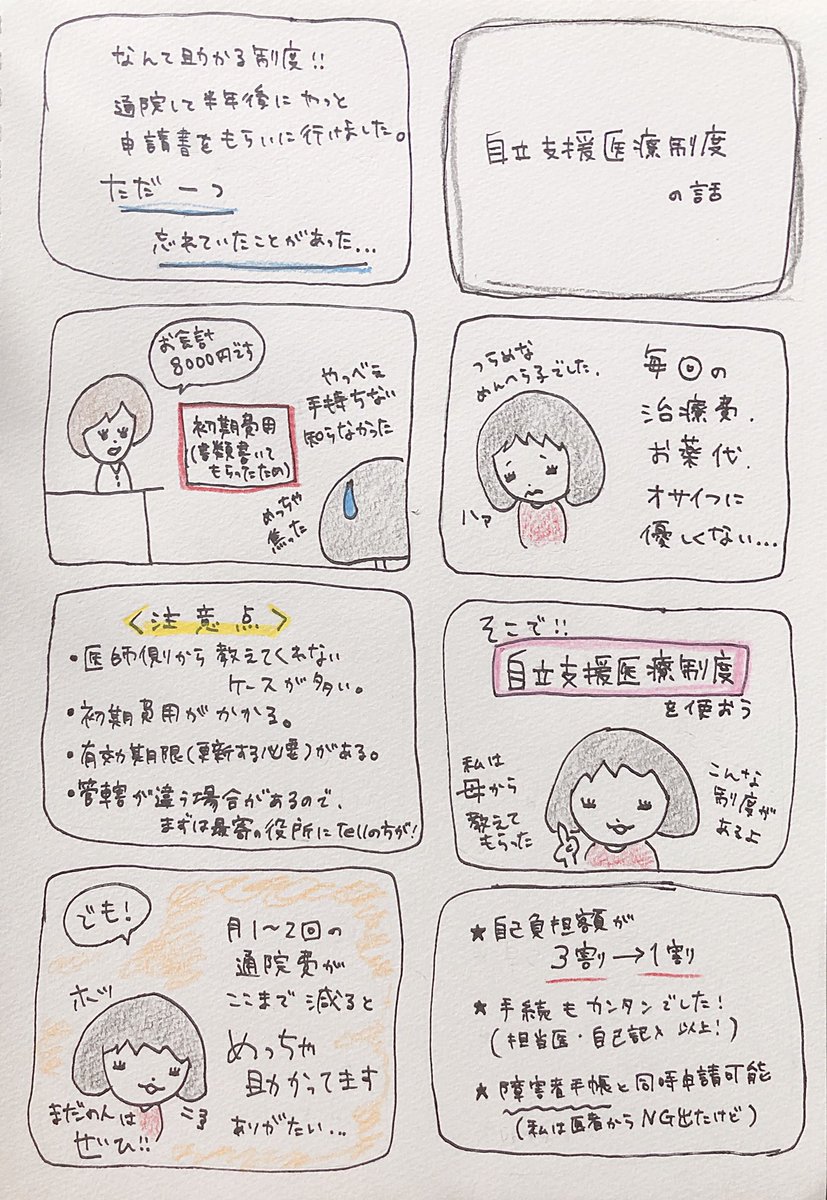 自立支援医療制度
の話
つらめな
めんへら子でした。
毎回の
治療費、
お薬代、
オサイフに
優しくない…
ハァ
そこで!!
自立支援医療制度
を使おう
こんな
制度が
あるよ
私は
母から
教えて
もらった
★自己負担額が
3割→1割
★手続もカンタンでした!
(担当医・自己記入 以上!)
★障害者手帳と同時申請可能
(私は医者からNG出たけど)
なんて助かる制度!!
通院して半年後にやっと
申請書をもらいに行けました。
ただ一つ
忘れていたことがあった…
お会計
8000円です
初期費用
(書類書いて
もらったため)
やっべぇ
手持ちない
知らなかった
めっちゃ
焦った
<注意点>
・医師側から教えてくれない
ケースが多い。
・初期費用がかかる。
・有効期限(更新する必要)がある。
・管轄が違う場合があるので、
まずは最寄の役所にtellの方が!
でも!
月1~2回の
通院費が
ここまで減ると
めっちゃ
助かってます
ありがたい…
ホッ
まだのんは
ぜひ!!